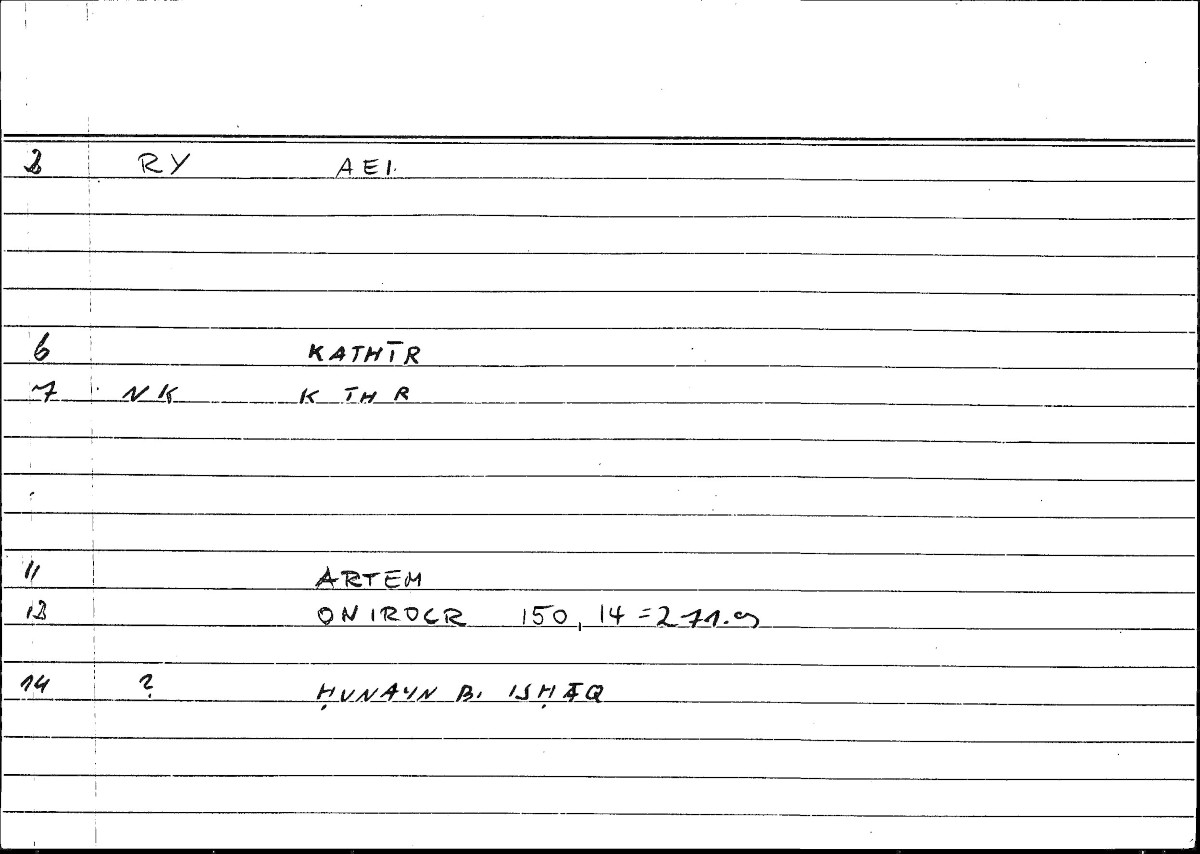 2 RY AEI.
6 KATHĪR
7 NK K TH R
11 ARTEM
13 ONIROCR 150, 14 = 271.9
14 ? ḤUNAYN B. ISḤĀQ